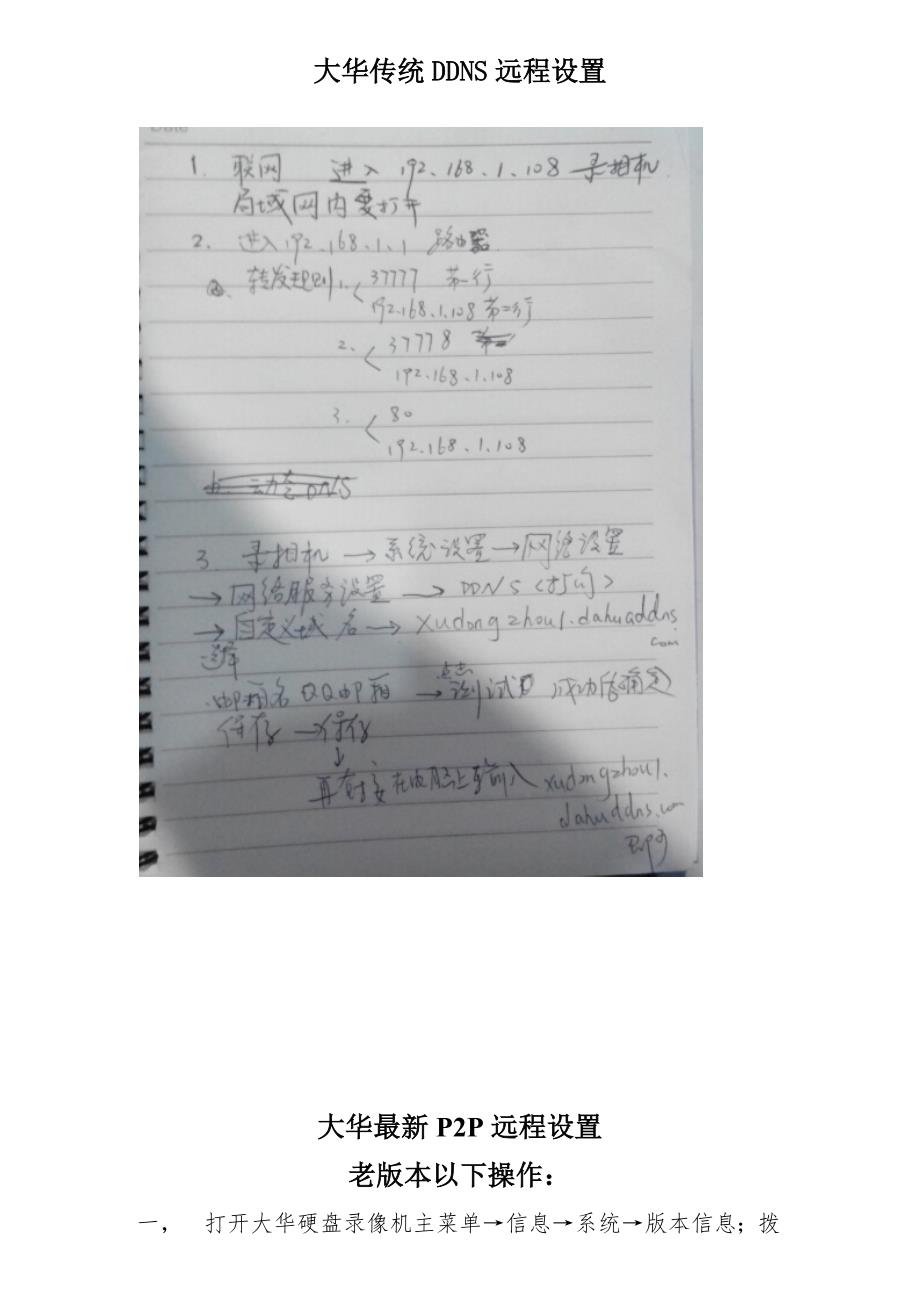 大华传统DDNS远程设置
Date
1. 联网 进入 192.168.1.108 录相机
局域网内要打开
2. 进入192.168.1.1 路由器
a. 转发规则 1. 37777 第一行
192.168.1.108 第二行
2. 37778
192.168.1.108
3. 80
192.168.1.108
b. 动态DNS
3 录相机→系统设置→网络设置
→网络服务设置→DDNS
→自定义域名→xudongzhou1.dahuaddns.
com
选择
邮箱名QQ邮箱→点击测试 成功后确定
保存→保存
↓
再直接在电脑上 输入 xudongzhou1.
dahuddns.com
即可
大华最新P2P远程设置
老版本以下操作：
一， 打开大华硬盘录像机主菜单→信息→系统→版本信息；拨